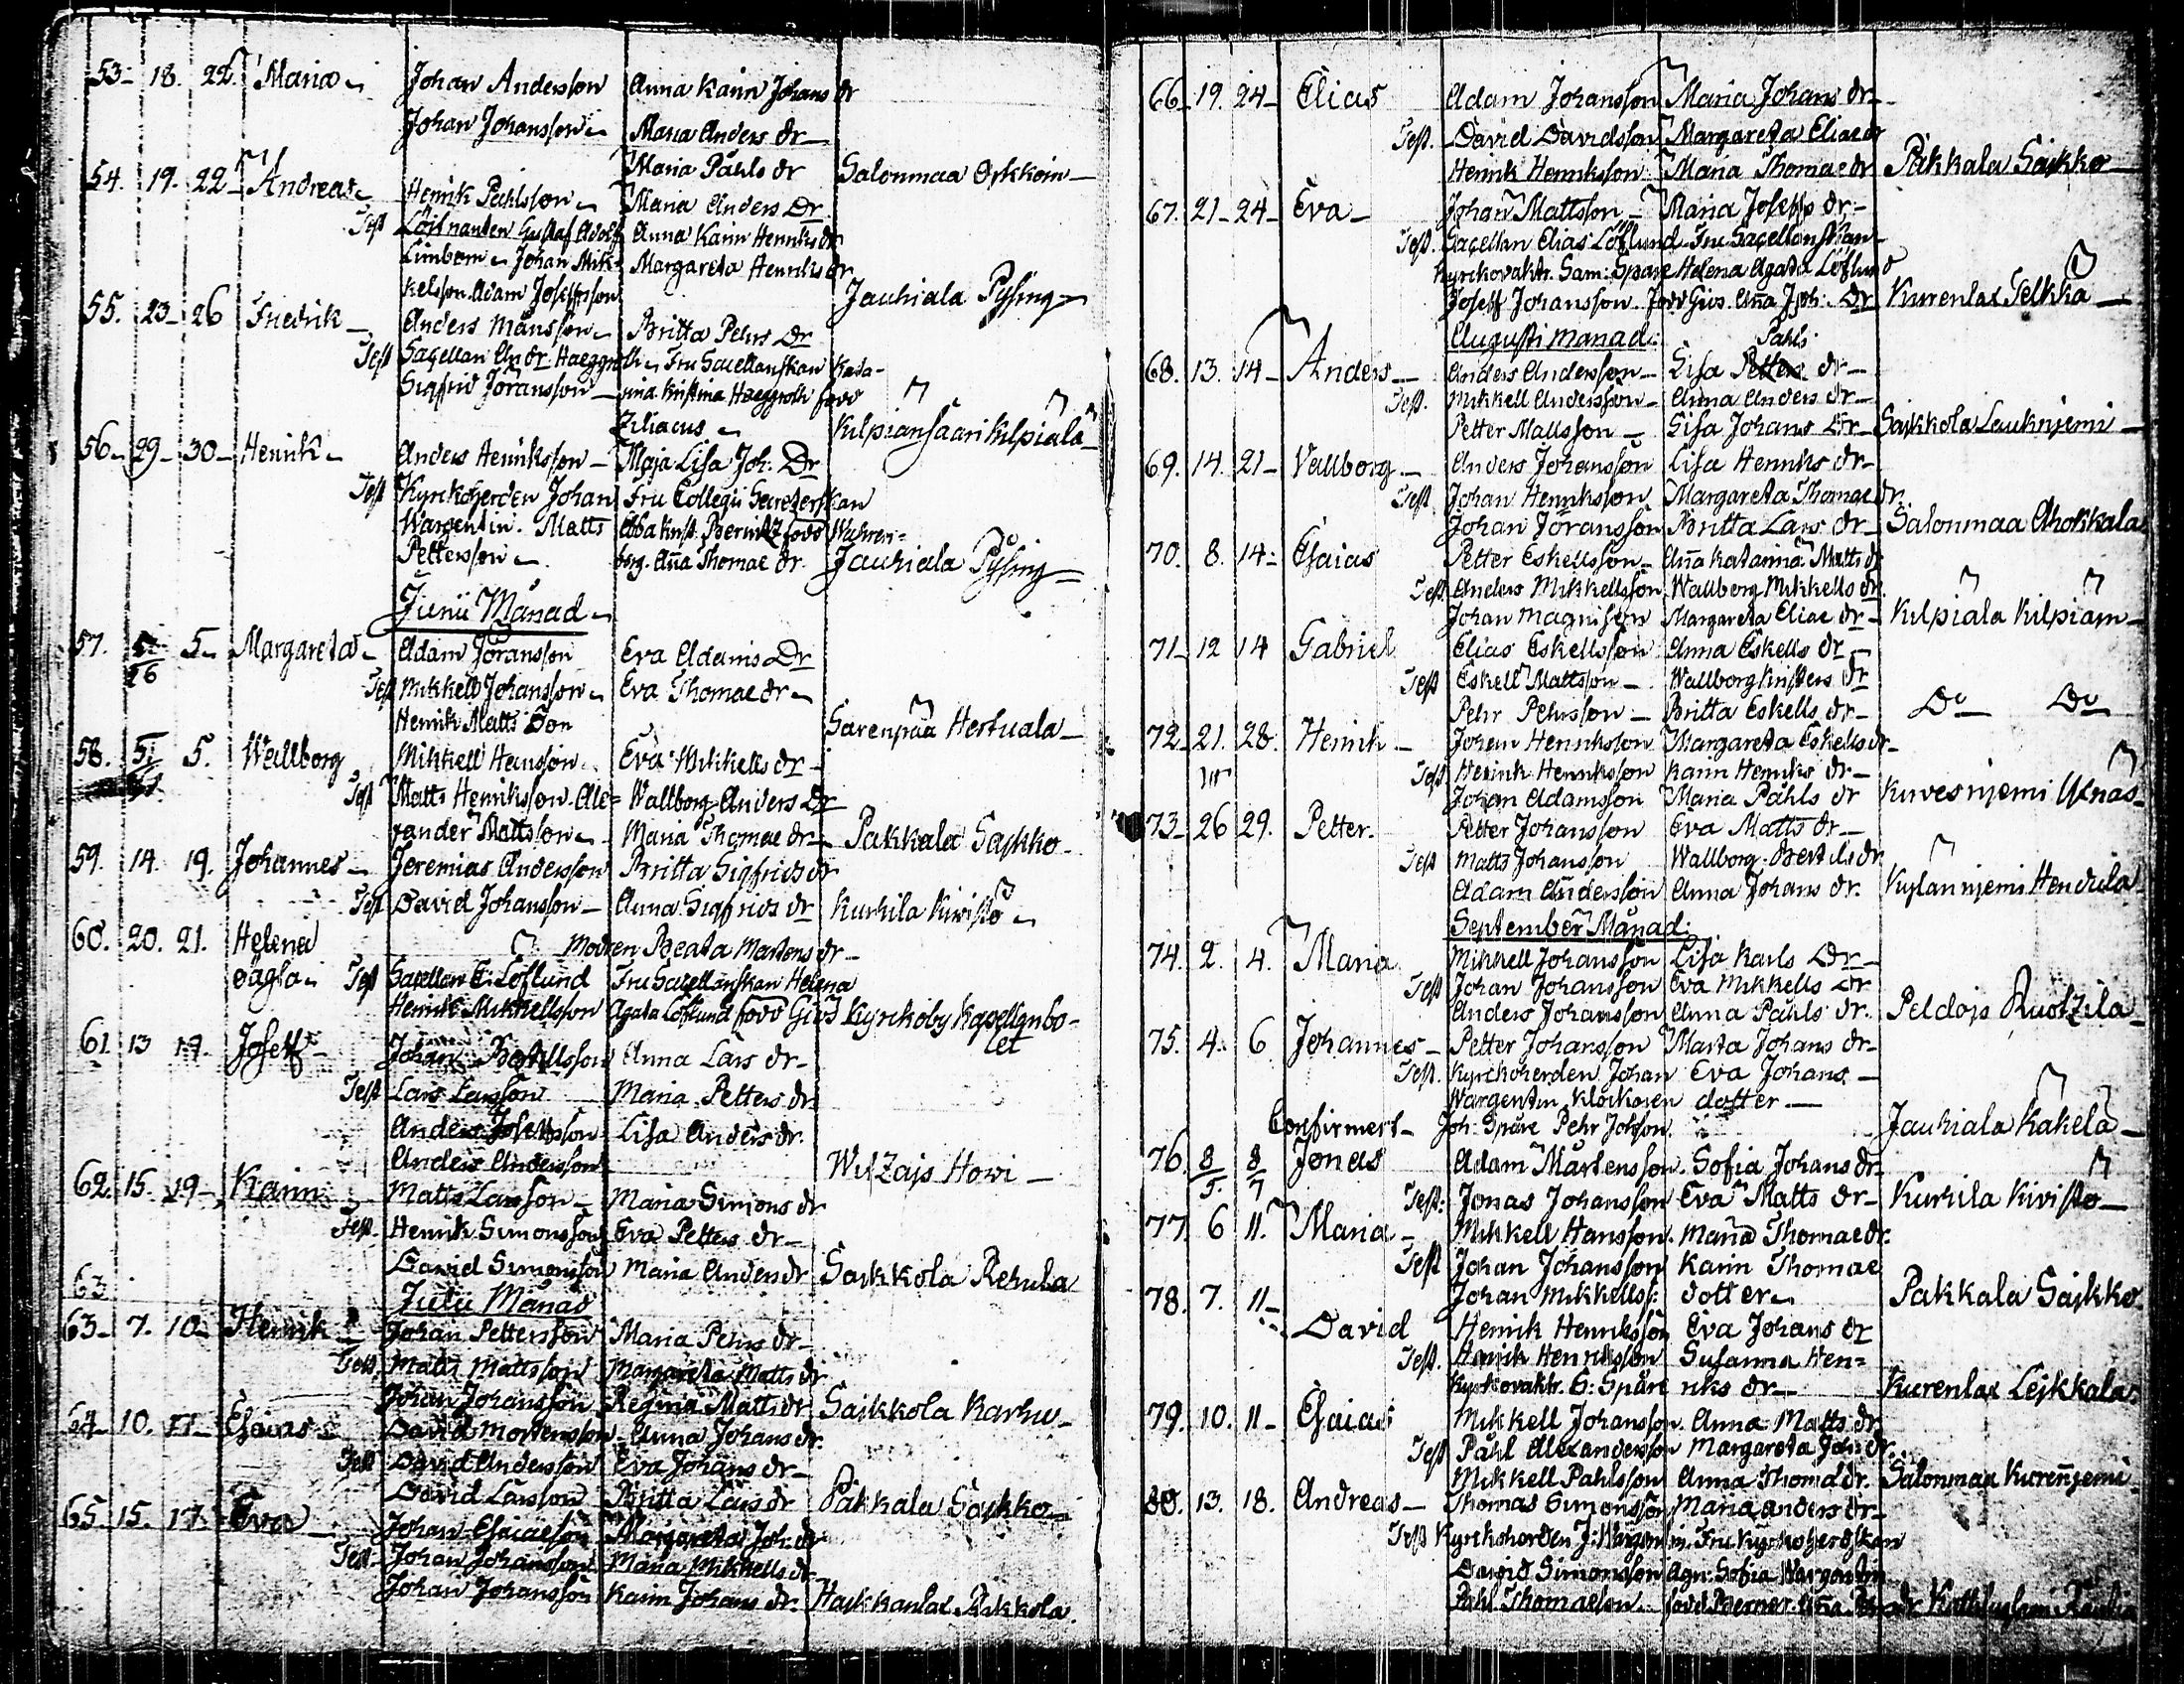 53 18. 22. Maria Johan Andersson Anna Karin Johans dr
Johan Johansson Maria Anders dr
Maria Påhls dr Salonmaa
54. 19. 22 Andreas Henrik Påhlsson Maria Anders Dr
Test Löjtnanten Gustaf Adolf Anna Karin Henriks dr
Limbom Johan Mik- Margareta Henriks dr
kelsson. Adam Josefsson Jauhiala Pysing
55. 23 26 Fredrik Anders Månsson Britta Pehrs Dr
Test Sacellan Andr. Haeggroth Fru Sacellanskan Kata-
Sigfrid Joransson rina Kristina Haeggroth född
Ziliacus Kilpiansaari Kilpiälä
56 29 30 Henrik Anders Henriksson Maja Lisa Joh. Dr
Test Kyrckoherden Johan Fru Collegii Secreterskan
Wargentin. Matts Ebba Krist. Bernitz född Wahren=
Pettersson borg. Aña Thomae dr. Jauhiala Pysing
Junii Månad
57. 5 Margareta Adam Joransson Eva Adams Dr
26
Test Mikkell Johansson Eva Thomae dr
Henrik Matts Son Sarenpää Hertuala
58. 5. Wallborg Mikkell Hansson Eva Mikkells dr
Test Matts Henriksson. Ale= Wallborg Anders Dr
xander Mattsson Maria Thomae dr Pakkala Sajkko
59. 14. 19. Johannes Jeremias Andersson Britta Sigfrids dr
Test David Johansson Anna Sigfrids dr Kurkila Kivistö
60. 20. 21. Helena Modren Beata Martens dr
oägta Test Sacellan E. Löflund Fru Sacellanskan Helena
Henrik Mikkellsson Agata Löflund född Kyrckoby Kapellanbo-
let
61 13 19. Joseff Johan Bertillsson Anna Lars dr
Test Lars Larsson Maria Petters dr
Anders Josefsson Lisa Anders dr
Anders Andersson Wiszajs Howi
62. 15. 19 Karin Matts Larsson Maria Simons dr
Test. Henrik Simonsson Eva Petters dr
David Simonsson Maria Anders dr Sajkkola Rehula
63
Julii Månad
63 7. 10 Henrik Johan Pettersson Maria Pehrs dr
Test Matts Mattsson Margareta Matts dr
Johan Johansson Regina Matts dr Sajkkola Karhu
64 10. 11 Esaias David Mortensson Anna Johans dr.
Test David Andersson Eva Johans dr
David Larsson Britta Lars dr Pakkala Sajkko
65 15. 17. Eva Johan Esaiaesson Margareta Joh. dr
Test Johan Johansson Maria Mikkells dr
Johan Johansson Karin Johans dr.
66 19. 24 Elias Adam Johansson Maria Johans dr
Test. David Davidsson Margareta Eliae dr
Henrik Henriksson Maria Thomae dr Pakkala Sajkko
67. 21 24 Eva Johan Mattsson Maria Joseps dr
Test. Sacellan Elias Löflund Fru Sacellanskan
Kyrckovaktr. Sam: Spåre Helena Agata Löflund
Joseff Johansson. född Aña Joh. Dr Kurenlax Telkkä
Augusti Månad. Påhls
68. 13. 14 Anders Anders Andersson Lisa Petters dr
Test. Mikkell Andersson Anna Anders dr
Petter Mattsson Lisa Johans dr Sajkkola Lauknjemi
69. 14. 21 Vallborg Anders Johansson Lisa Henriks dr
Test. Johan Henriksson Margareta Thomae dr.
Johan Joransson Britta Lars dr Salonmaa Ahokkala
70. 8. 14. Esaias Petter Eskellsson Aña Katarina Matts dr
Test. Anders Mikkellsson Wallborg Mikkells dr.
Johan Magnisson Margareta Eliae dr Kilpiala Kilpiäin
71 12 14 Gabriel Elias Eskellsson Anna Eskells dr
Test Eskell Mattsson Wallborg Kristers dr
Pehr Pehrsson Britta Eskells dr Do Do
72 21. 28. Henrik Johan Henriksson Margareta Eskells dr
Test Henrik Henriksson Karin Henriks dr
Johan Adamsson Maria Påhls dr Kuvesnjemi
73 26 29. Petter. Petter Johansson Eva Matts dr
Test Matts Johansson Wallborg Bertils dr
Adam Andersson Anna Johans dr. Kylännjemi Hendula
September Månad.
74. 2. 4. Maria Mikkell Johansson Lisa Karls Dr
Test Johan Johansson Eva Mikkells dr
Anders Johansson Anna Påhls dr. Peldojs Ruotzila
75. 4. 6 Johannes Petter Johansson Marta Johans dr
Test. Kyrckoherden Johan Eva Johans
Wargentin, Klockaren dotter
Confirmert Joh. Spåre Pehr Johsson. Jauhiala Kakelä
76. 8/5. 8/7 Jonas Adam Mårtensson. Sofia Johans dr
Test: Jonas Johansson Eva Matts dr Kurkila Kivistö
77. 6 11. Maria Mikkell Hansson. Maria Thomae dr.
Test Johan Johansson Karin Thomae
Johan Mikkellss: dotter Pakkala Sajkko
78. 7. 11 David Henrik Henriksson Eva Johans dr
Test. Henrik Henriksson Susanna Hen=
Kyrckovaktr. S: Spåre riks dr Kurenlax Lejkkala
79. 10. 11 Esaias Mikkell Johansson. Anna Matts dr
Test Påhl Alexandersson Margareta Joh: dr.
Mikkell Påhlsson Anna Thomæ dr. Salonmaa Kureñjemi
80. 13. 18. Andreas Thomas Simonsson Maria Anders dr
Test Kyrckoherden J: Wargentin. Fru Kyrckoherdskan
David Simonsson Agn: Sofia Wargentin
Påhl Thomaeson född Berner.